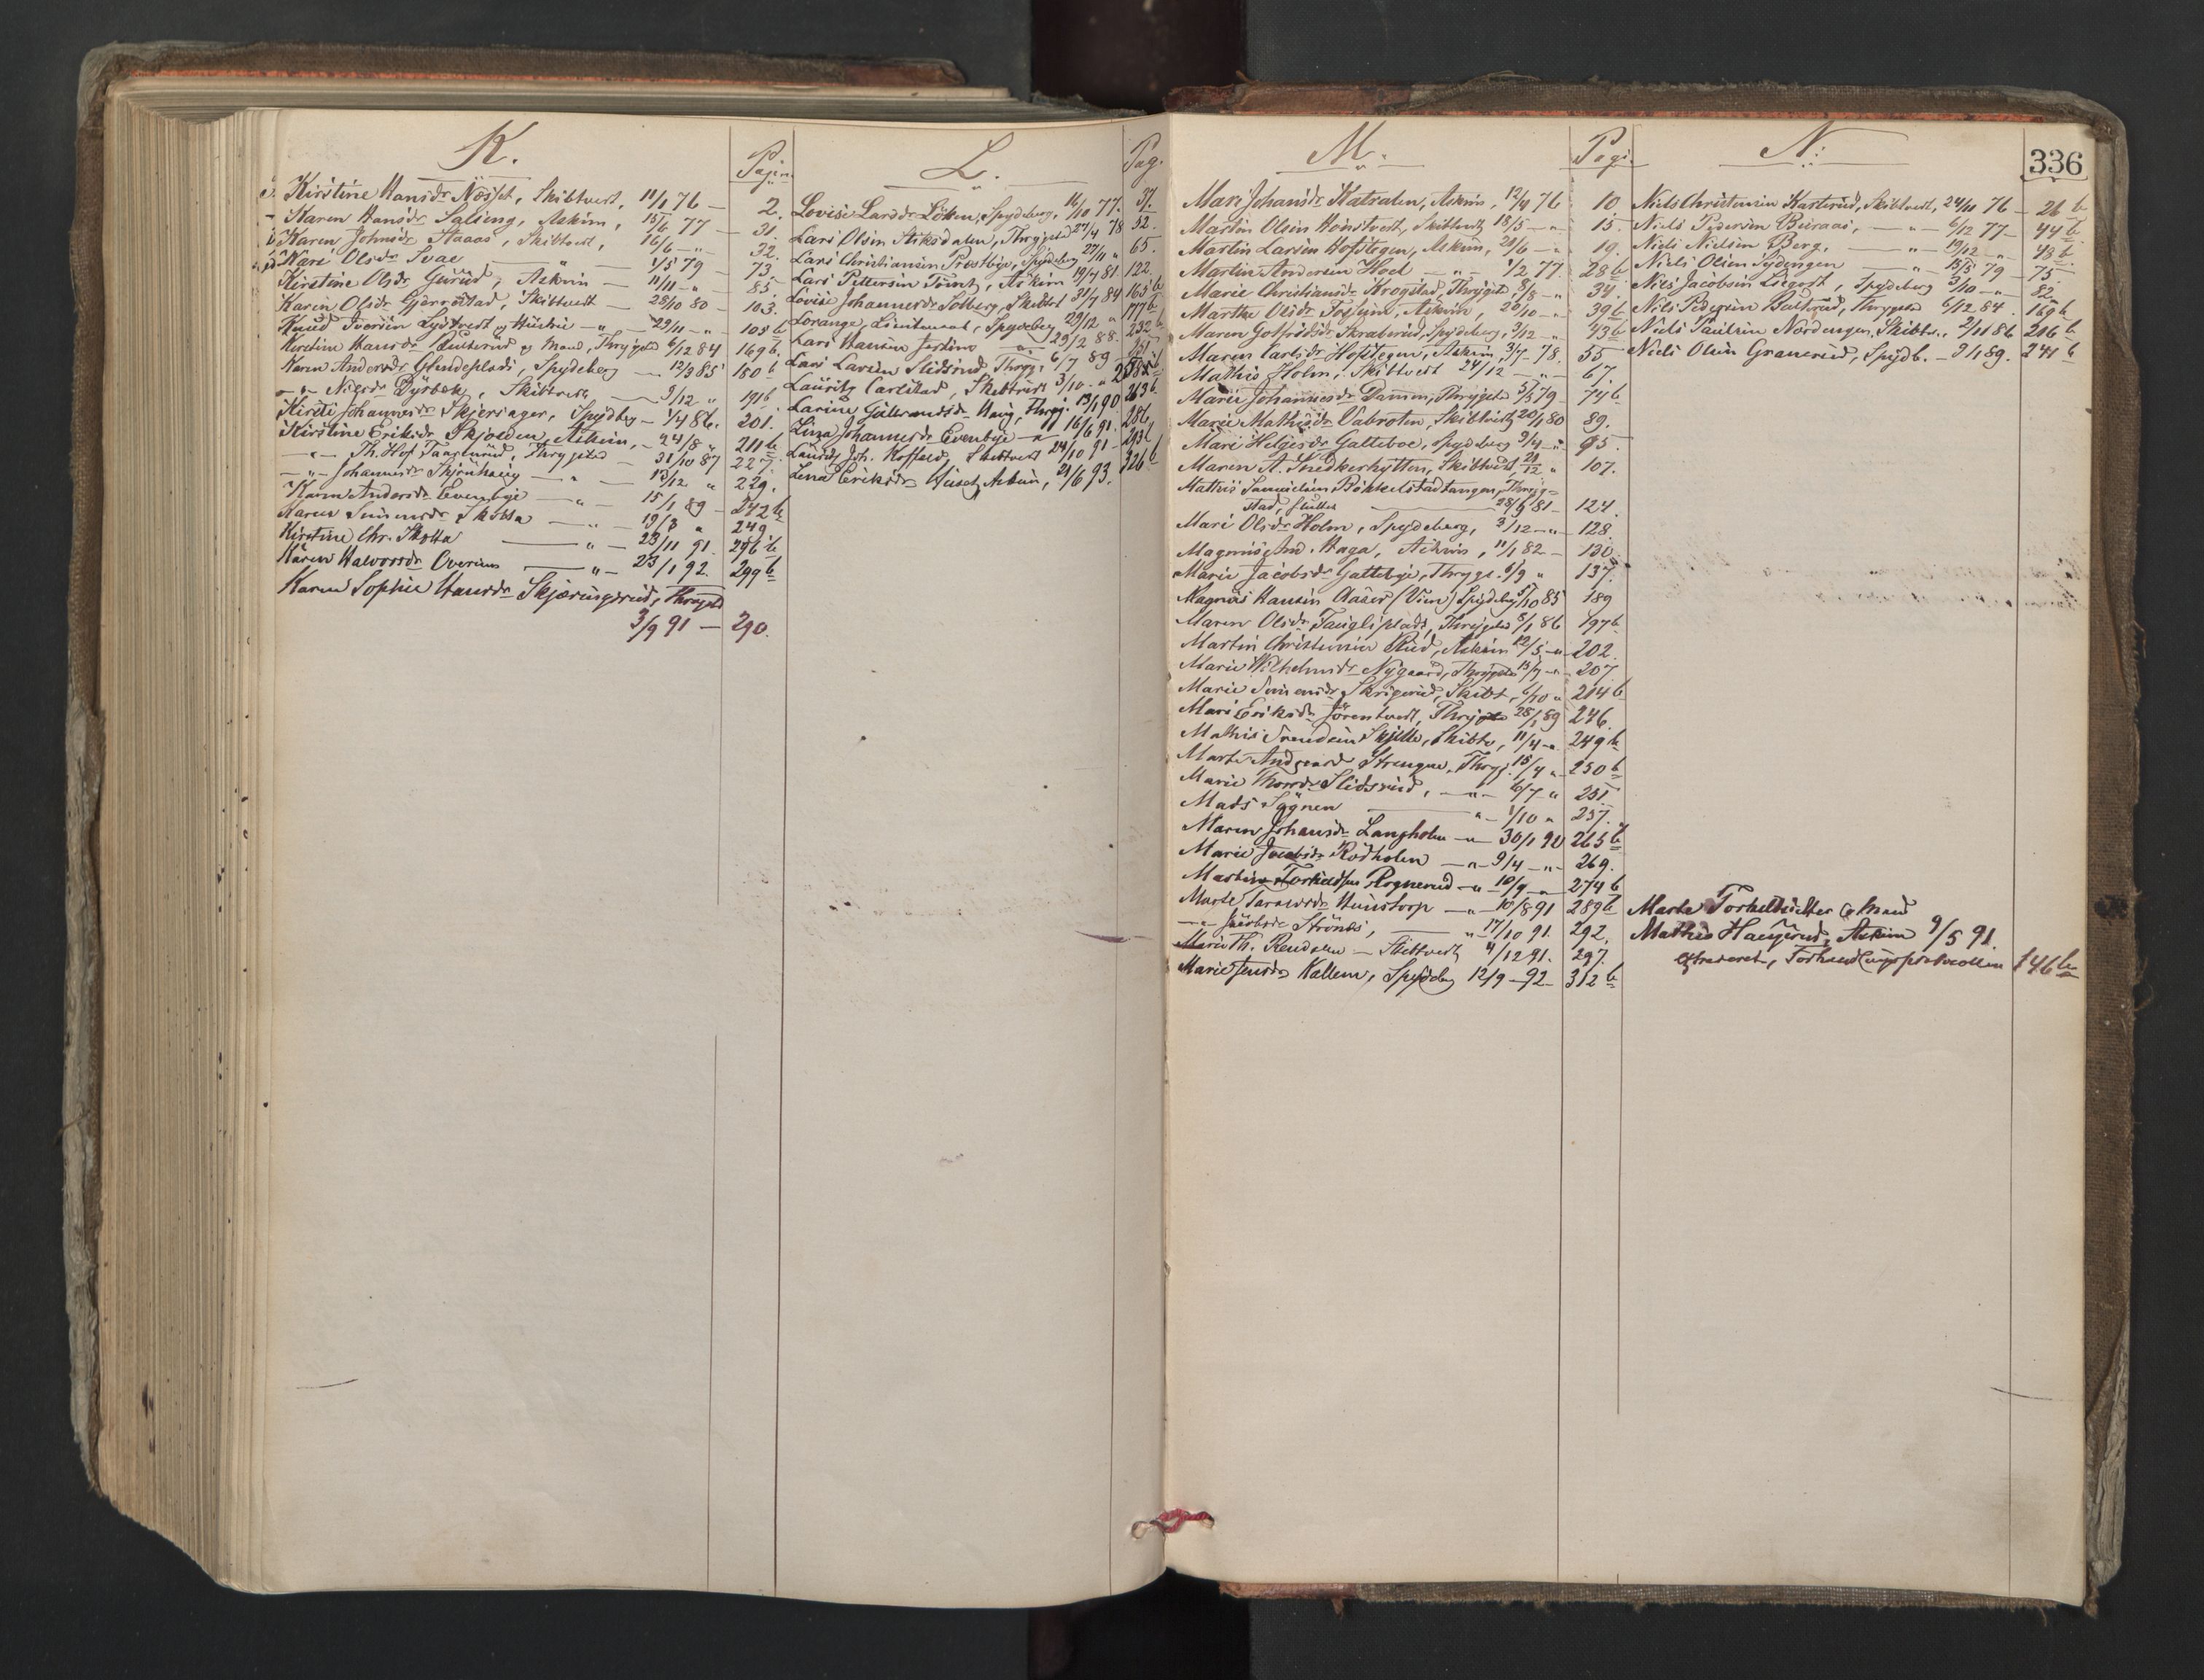 K.
Pagin
Kirstine Hansdr Næsset, Skibtvedt, 11/1 76 — 2.
Karen Hansdr Salseng, Askim, 15/6 77 — 31.
Karen Johnsdr Aaaas, Skibtvedt, 16/6 — " 32.
Kari Olsdr Svae — " — 1/5 79 — 73.
Kirstine Olsdr Gurud, Askim — 11/11 — " 85
Karen Olsdr Gjerrestad, Skibtvedt — 28/10 80 — 103.
Knud Iversen Lystvedt og Hustru — " — 29/11 — " 105 b
Kirstine Hansdr og Mand, Thrygstad 6/12 84 169 b.
Karen Andersdr Glendeplads, Spydeberg — 12/3 85 180 b
— " — Nilsdr Dyrbek, Skibtvedt — 3/12 " 191 b
Kirsti Johannesdr Skjersager, Spydbg — 1/4 86. 201.
Kirstine Eriksdr Skjolden, Askim, — 24/8 " 211 b
— " — Th. Hof Taarnerud, Thrygstad — 31/10 87 227.
— " — Johannesdr Skjønhaug — " — 13/12 " 229.
Karen Andersdr Evenbye — " — 15/1 89 — 242 b
Karen Simensdr Skotta — " — 19/3 " 249
Kirstine Chr. Skotta — " — 23/11 91. 296 b
Karen Halvorsdr Overim — " — 23/1 92. 299 b
Karen Sophie Hansdr Skjæringsrud, Thrygsta
3/9 91 — 290.
L.
Pag.
Lovise Larsdr Löken, Spydeberg, 16/10 77. 37.
Lars Olsen Stiksdalen, Thrygstad 27/4 78 52.
Lars Christiansen Prestbye, Spydeberg 27/11 " 65.
Lars Pettersen Tomt, Askim 19/4 81. 122.
Lovise Johannesdr Solberg, Skibtvt 31/7 84 165 b
Lorange, Lieutenant, Spydeberg 29/12 " 177 b
Lars Hansen — " — 29/2 88. 232 b
Lars Larsen Slidsrud, Thrygs. 6/7 89 — 251
Lauritz Carlstad, Skibtvedt 3/10 — " 258 b
Larine Gulbrandsdr Haug, Thryg. 13/1 90 263 b
Lina Johannesdr Evenbye — " 16/6 91. 286
Lauritz Joh. Koffeld, Skibtvedt 24/10 91 — 293 b
Lina Eriksdr Huset, Askim, 21/6 93. 326 b
M.
Pagi.
Mari Johansdr Katralen, Askim, 12/9 76 10
Martin Olsen Honstvedt, Skibtvedt 18/5 — " 15.
Martin Larsen Hofstegen, Askim, 21/6 — " 19.
Martin Andersen Hoel — " — 1/2 77. 28 b
Marie Christiansdr Krogstad, Thrygst. 8/8 — " 34.
Marthe Olsdr Fossund, Askim, 20/10 — " 39 b
Maren Gotfredsdr Skraberud, Spydeberg, 3/12 — " 43 b
Maren Carlsdr Hofstegen, Askim, 3/7 — 78. 55
Mathis Holm, Skibtvedt 24/12 — " — 67.
Marie Johannesdr Dammen, Thrygsta 5/5 79 — 74 b
Marie Mathisdr Vabroten, Skibtvedt 20/1 80 89.
Mari Helgesdr Gatteboe, Spydeberg 9/4 — " 95.
Maren A. Snedkerhytten, Skibtvedt 21/12 " 107.
Mathis Samuelsen Röhkelstadtangen, Thryg=
stad, — 28/9 81 — 124.
Mari Olsdr Holm, Spydeberg, 3/12 — " 128.
Magnus And. Haga, Askim, 11/1 82 — 130
Marie Jacobsdr Gattebye, Thrygs. 6/9 " 137.
Magnus Hansen Aaser (Viren) Spydeberg 5/10 85 189
Maren Olsdr Fangliplads, Thrygsta 8/1 86 197 b
Martin Christensen Rud, Askim 12/5 — " 202.
Marie Wilhelmsdr Nygaard, Thrygsta 13/7 — " 207
Marie Simensdr Skrigerud, Skibt. 6/10 " 214 b
Mari Eriksdr Jörentvedt, Thrygsta 28/1 89 246.
Mathis Svendsen Skjelle, Skibtv, 11/4 — " 249 b
Marte And Strengen, Thryg. 15/4 " 250 b
Marie Thorsdr Slidsrud, — " — 6/7 " 251
Mads Iggnen — " — 1/10 " 257.
Maren Johansdr Langholm — " — 30/1 90 265 b
Marie Jacobsdr Rödholen — " — 9/4 — " — 269.
Martin Torkildsen Rognerud — " — 10/9 — " — 274 b
Marte Tarawsdr Hunstorp — " — 10/8 91 289 b
— " — Jacobsdr Strönæs, — " — 17/10 91. 292.
Marie Th. Rendalen — Skibtvedt 4/12 91. 297.
Marie Jensdr Kallem, Spydebg 12/9 — 92 — 312 b
N.
336
Niels Christensen Karterud, Skibtvedt, 24/11 76 — 26 b
Niels Pedersen Buraas, — " — 6/12 77 — 44 b
Niels Nielsen Berg, — " 19/12 — " 48 b.
Niels Olsen Sydengen — " — 15/5 79 — 75.
Niels Jacobsen Liegost, Spydeberg 3/10 — " 82.
Niels Pedersen Bustrud, Thrygsta 6/12 84. 169 b
Niels Paulsen Nordengen, Skibtv., 2/11 86 216 b
Niels Olsen Granerud, Spydb. — 3/1 89. 241 b
Marte Torkelsdatter & Mand
Mathis Haugerud, Askim 9/5 91.
Extraderet, Forhandlingsprotocollen 146 b